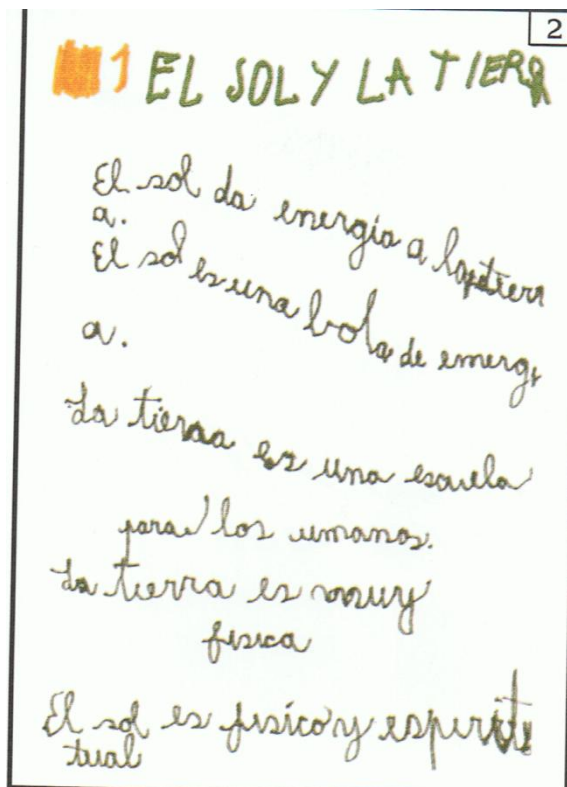 2
1 EL SOL Y LA TIERR
El sol da energia a la tierr
a.
El sol es una bola de emergi
a.
La tierra es una escuela
para los umanos.
La tierra es muy
fisica
El sol es fisico y espirit
tual